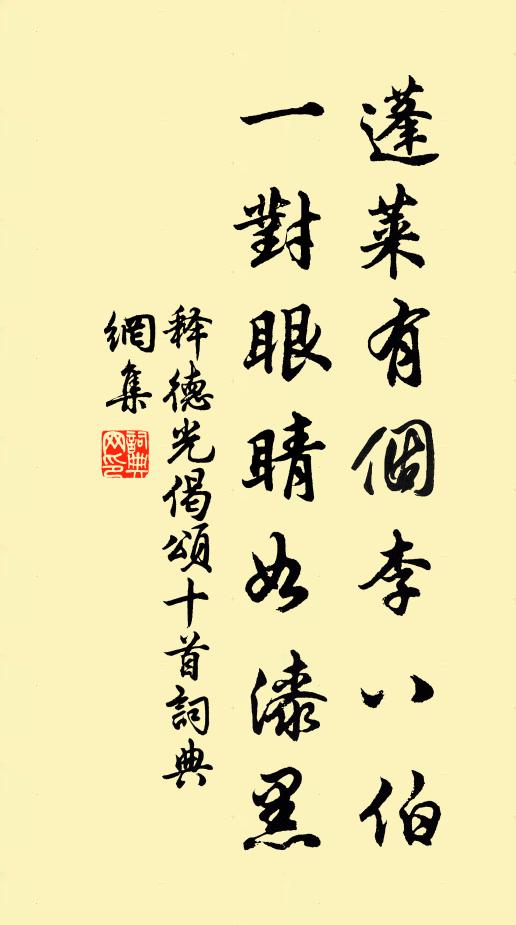 蓬萊有個李八伯
一對眼睛如漆黑
释德光偈頌十首詞典
網集
詞典
网印